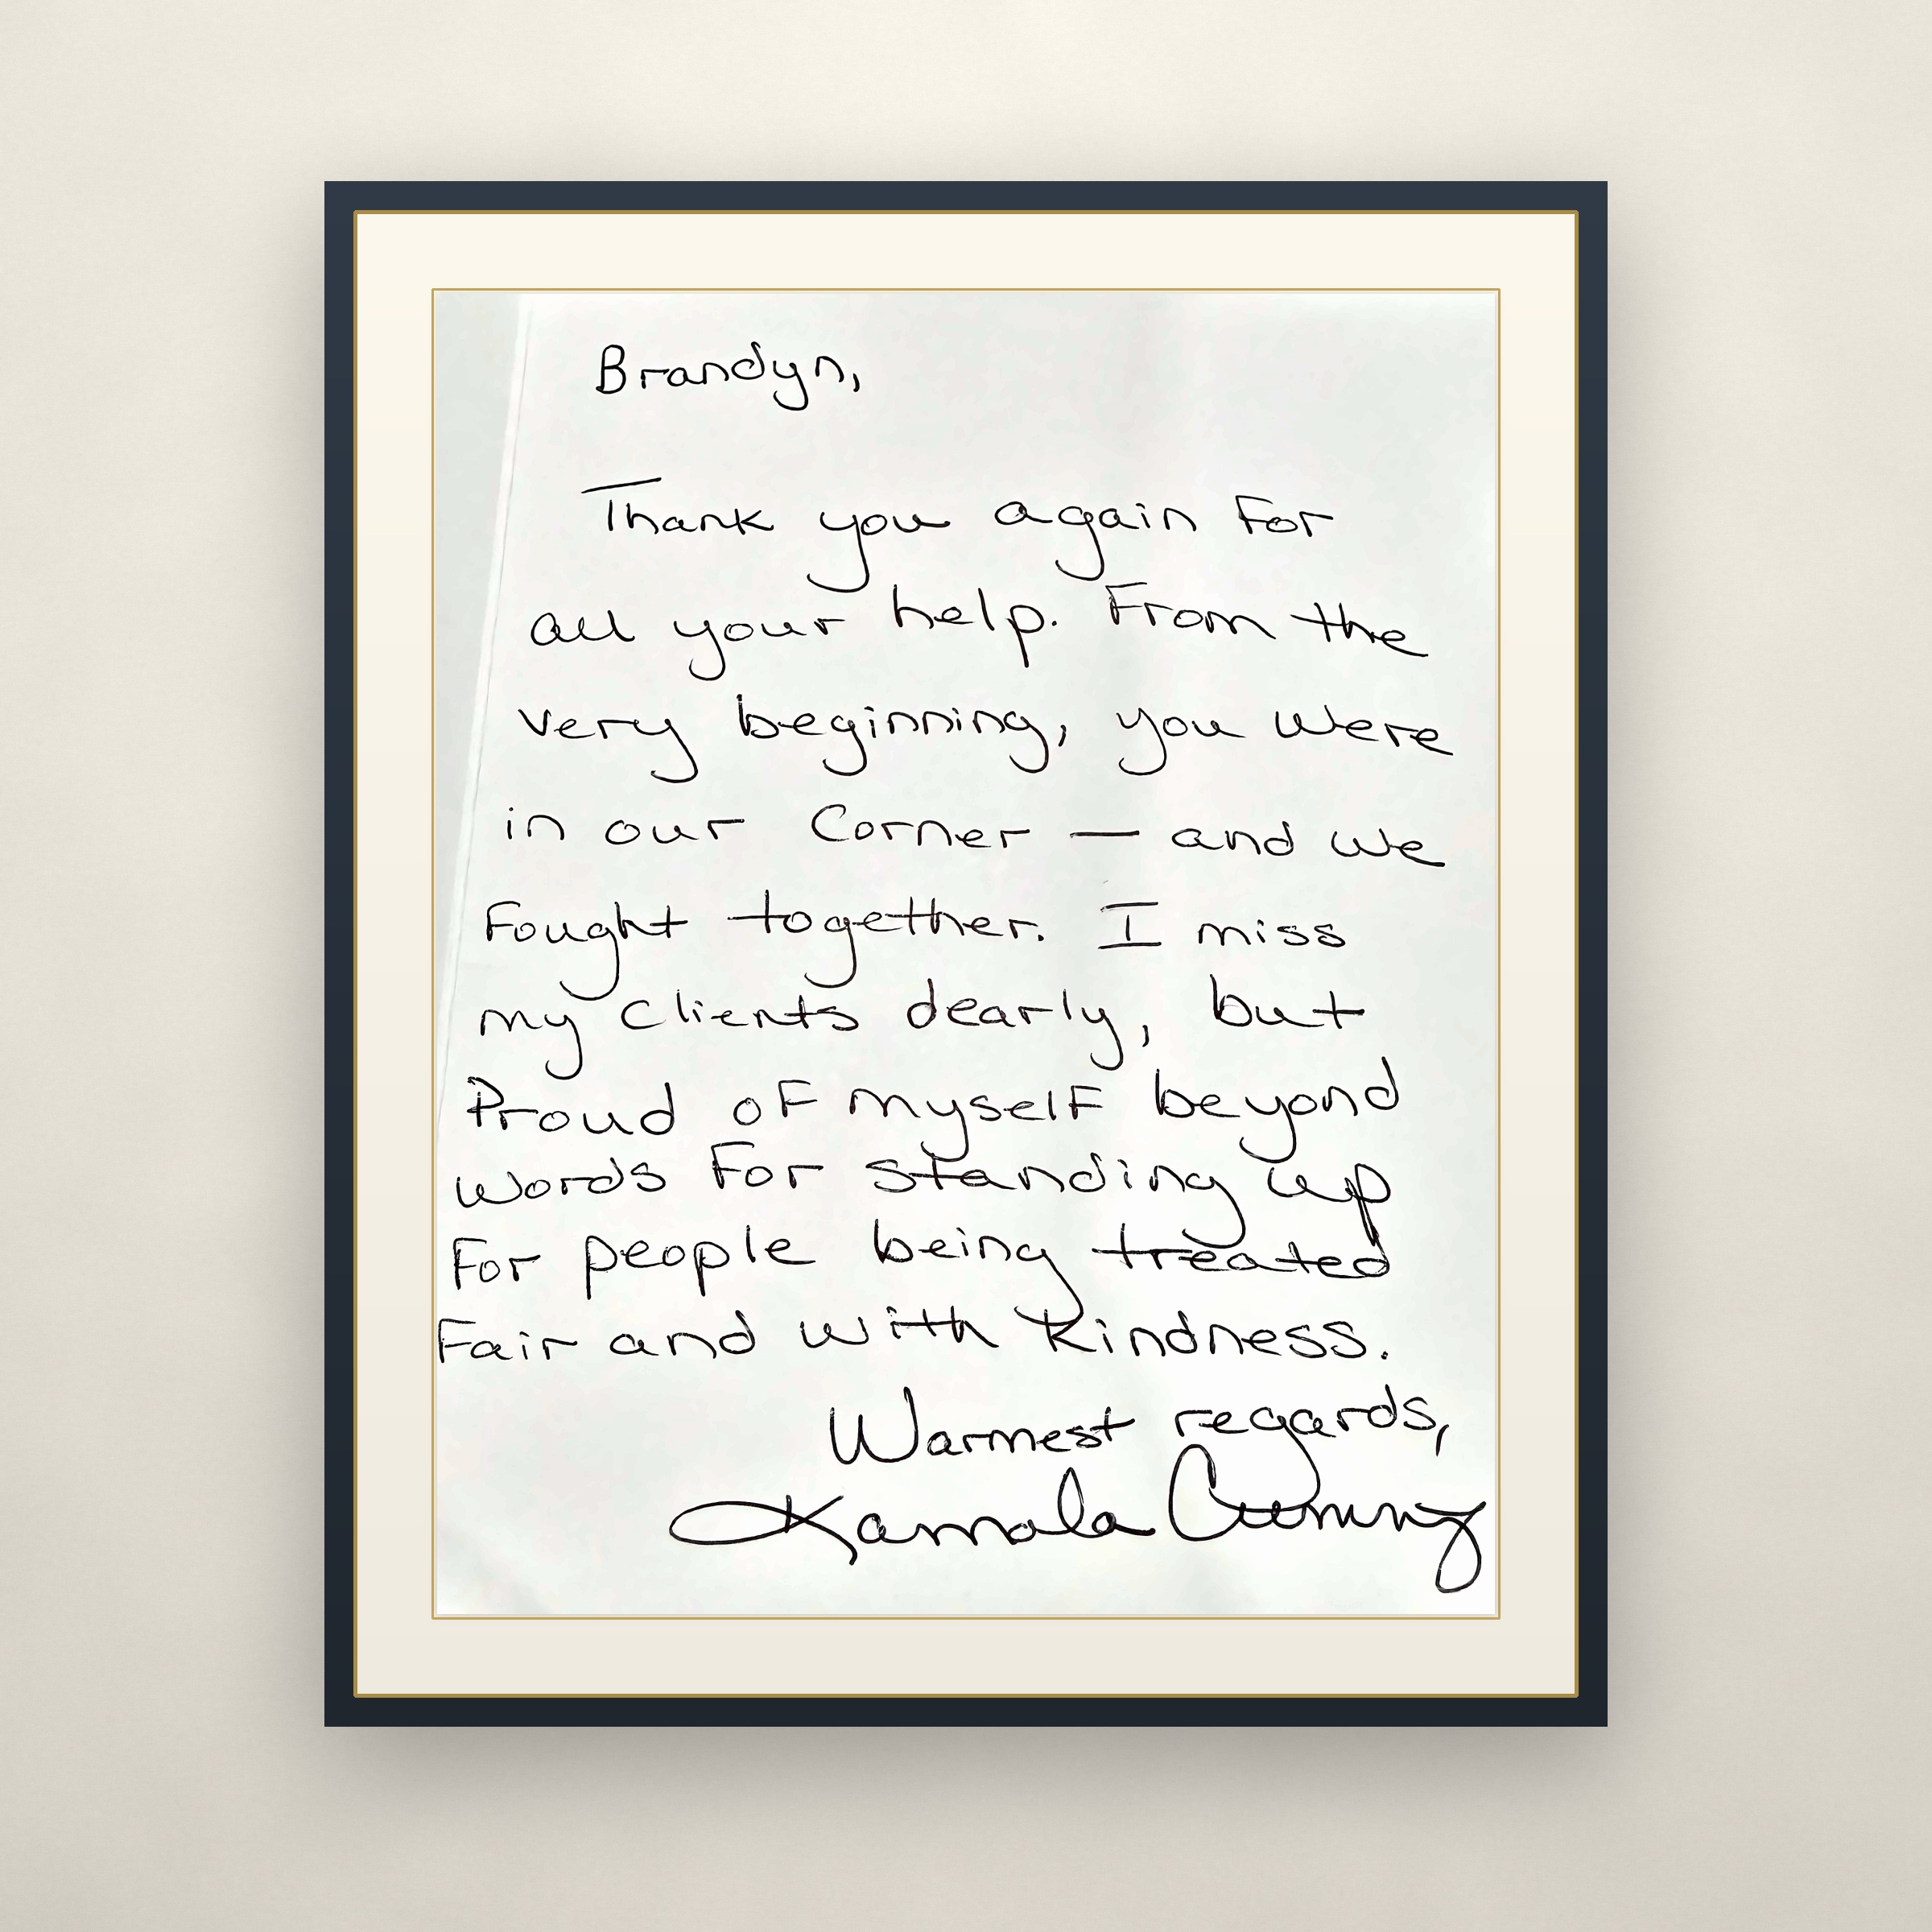 Brandyn,
Thank you again for
all your help. From the
very beginning, you were
in our Corner — and we
fought together. I miss
my clients dearly, but
Proud of myself beyond
words for standing up
for people being treated
fair and with kindness.
Warmest regards,
Kamala